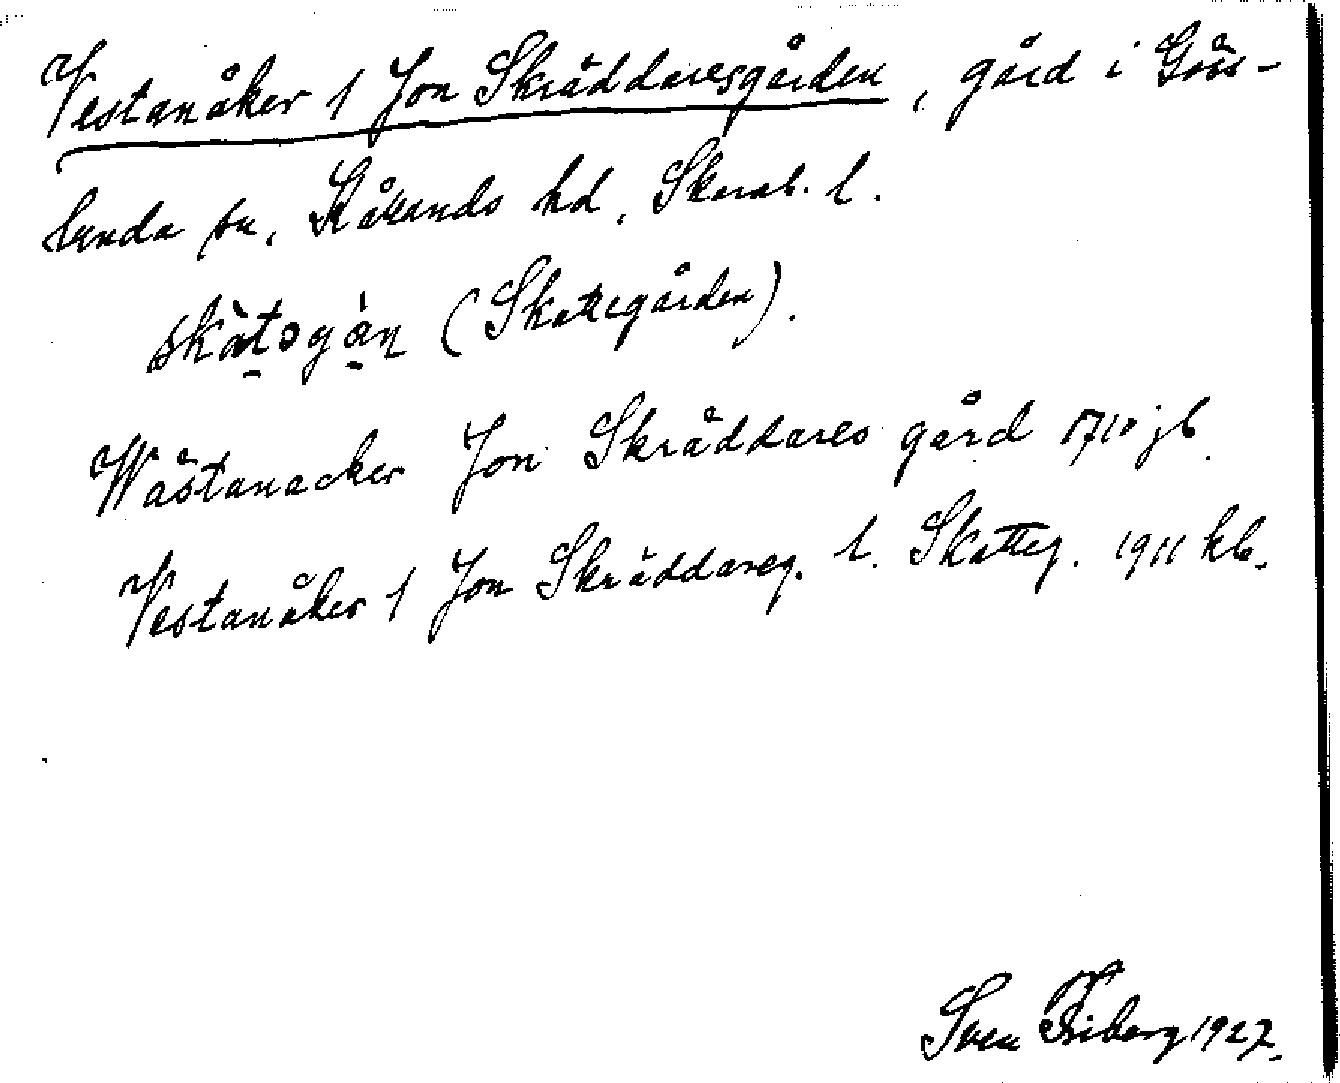 Vestanåker 1 Jon Skräddaresgården, gård i Gös-
lunda sn, Kålands hd, Skarab. l.
skàtəgàn (Skattegården).
Wästanacker Jon Skräddares gård 1710 jb.
Vestanåker 1 Jon Skräddareg. l. Skatteg. 1911 kb.
Sven Friberg 1927.